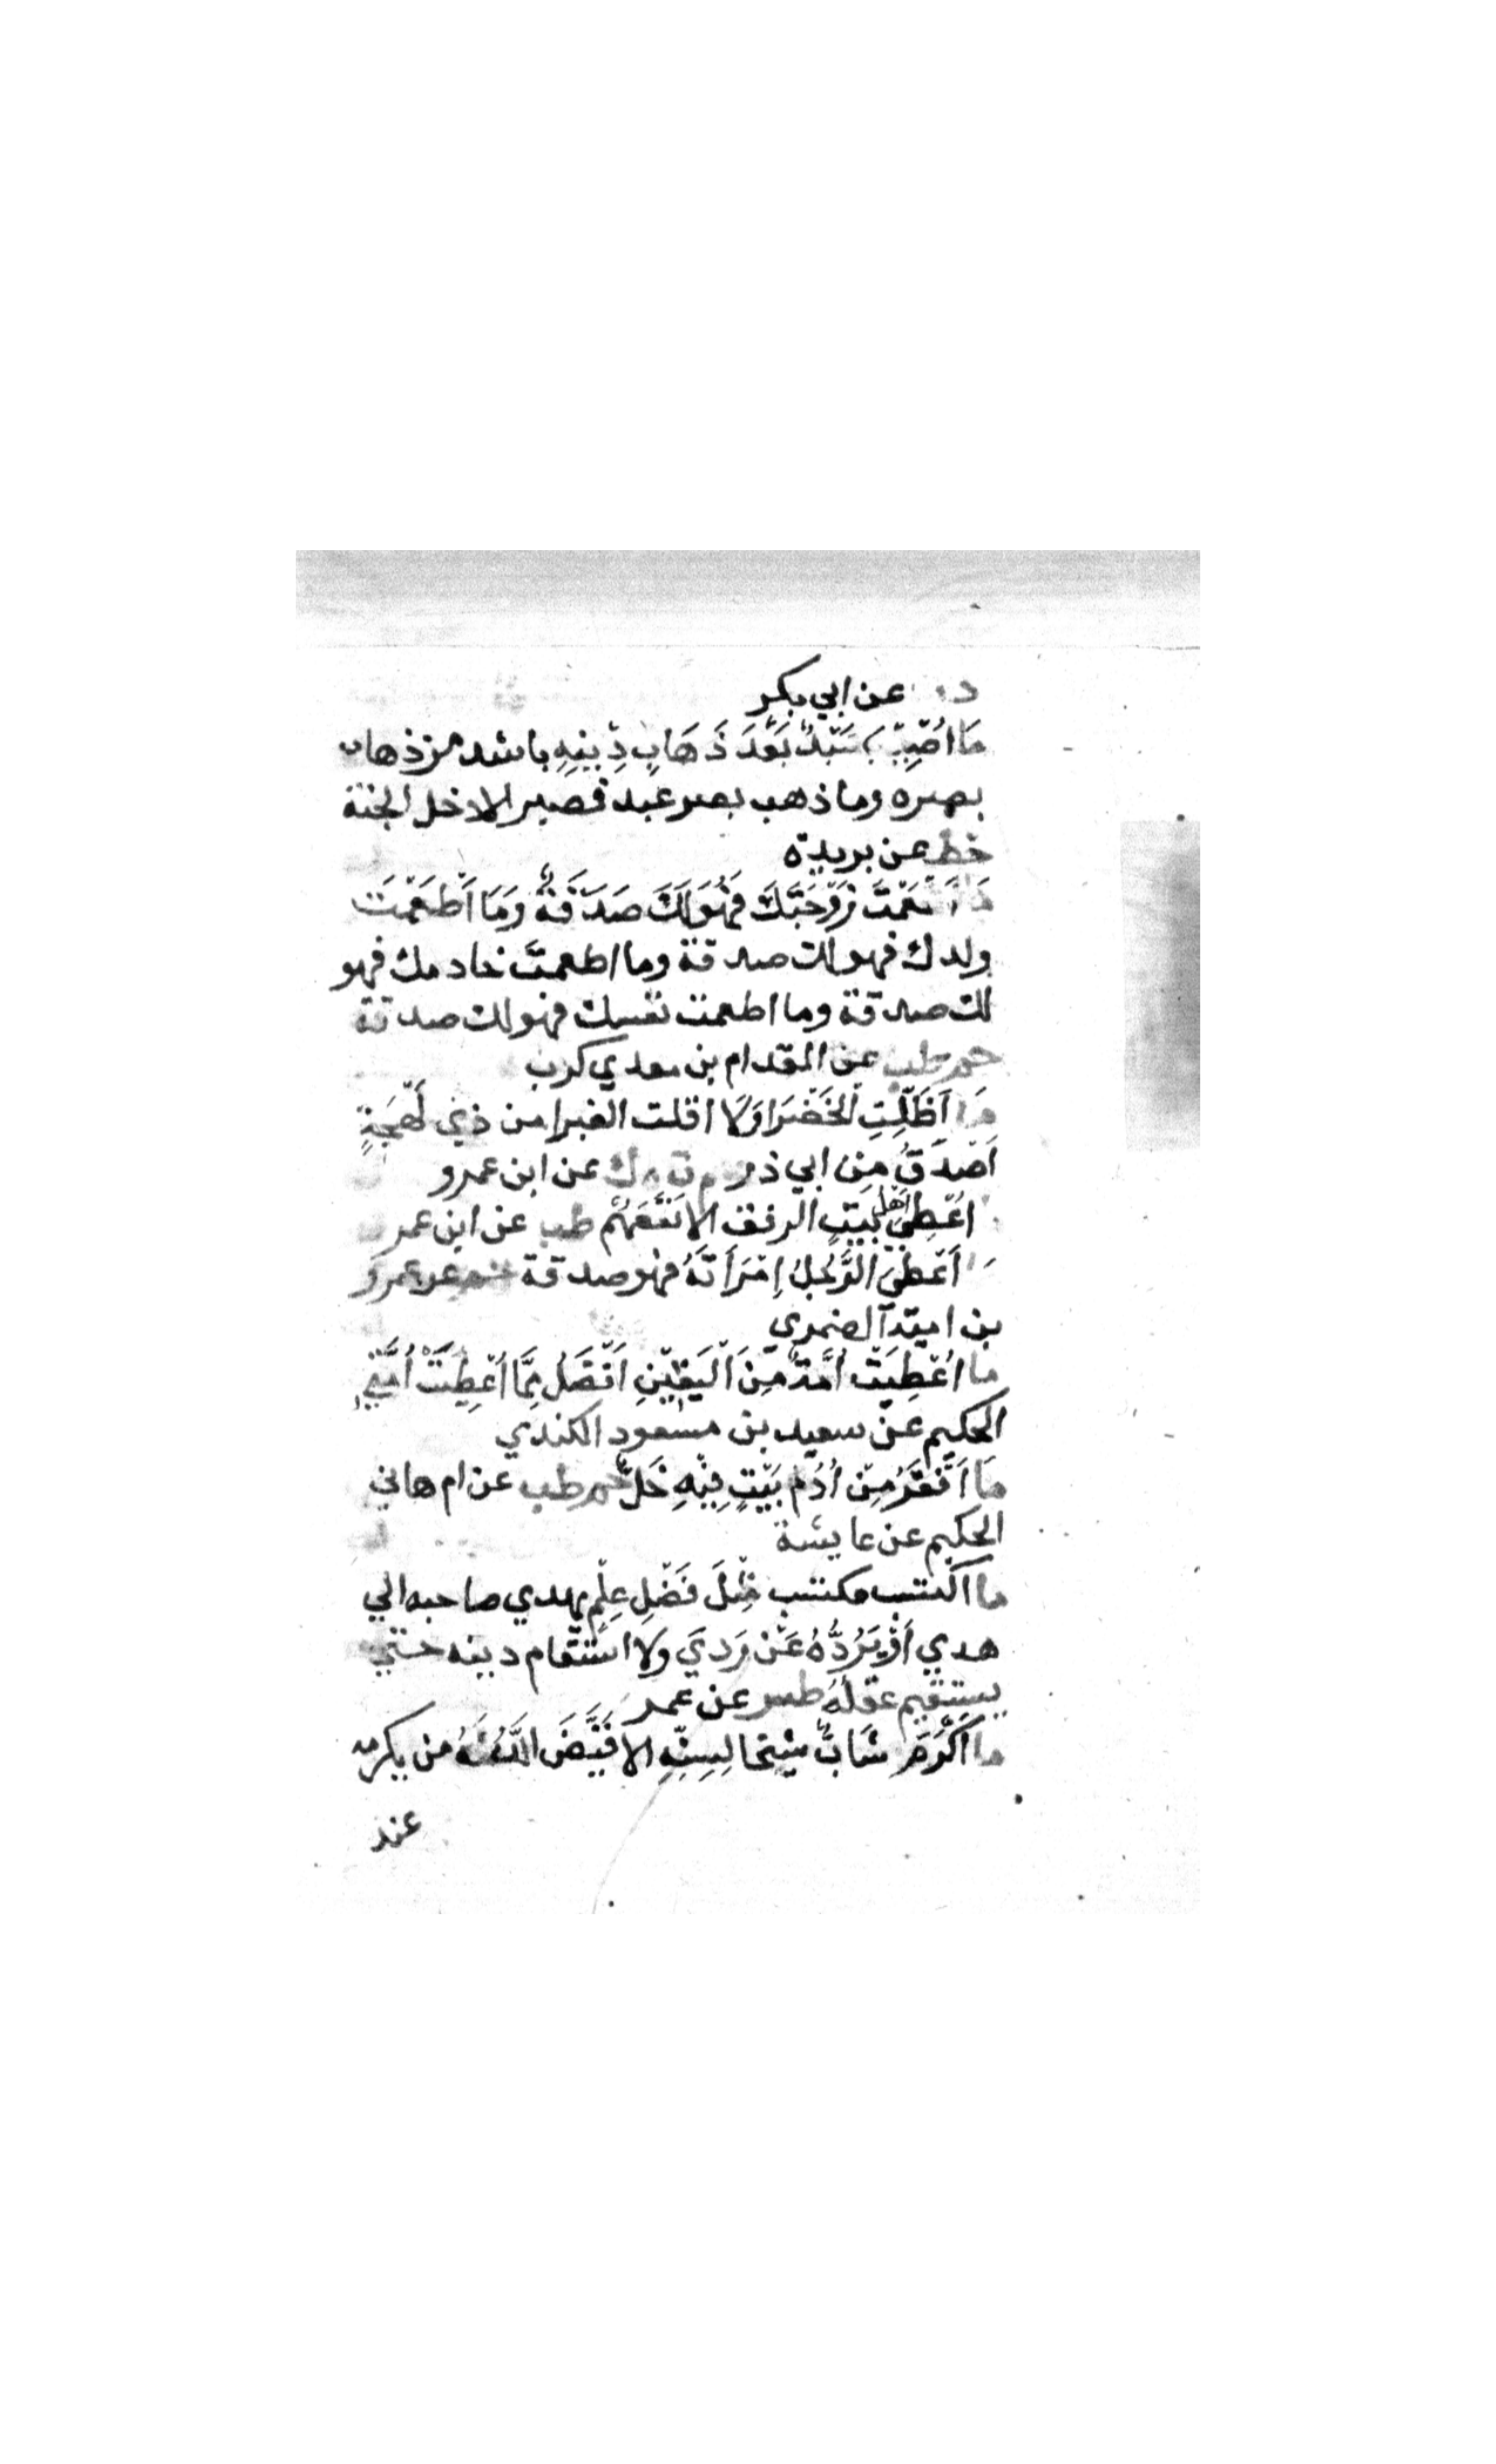 د عن ابي بكر
مَا اُصِيْبَ عَبْدٌ بَعْدَ ذَهَابِ دِيْنِهِ باشد من ذهاب
بصره وما ذهب بصر عبد فصبر الا دخل الجنة
خط عن بريدة
مَا اَطْعَمْتَ زَوْجَتَكَ فَهُوَ لَكَ صَدَقَةٌ وَمَا اَطْعَمْتَ
ولدك فهو لك صدقة وما اطعمتَ خادمك فهو
لك صدقة وما اطعمت نفسك فهو لك صدقة
حم طب عن المقدام بن معدي كرب
مَا اَظَلَّتِ الخَضْرَا وَلَا اقلت الغبرا من ذي لَهْجَةٍ
اَصْدَقُ مِن ابي ذر ت ك عن ابن عمرو
اُعْطِيَ اَهْلُ بَيْتٍ الرفق الا نَفَعَهُمْ طب عن ابن عمر
اَعْطَى الرَّجُلُ اِمْرَاَتَهُ فهو صدقة حم عن عمرو
بن امية الضمري
ما اُعْطِيَتْ اُمَّةٌ مِنَ الْيَقِيْنِ اَفْضَلُ مِمَّا اُعْطِيَتْ اُمَّتِي
الحكيم عن سعيد بن مسعود الكندي
مَا اَقْفَرَ مِنْ اُدُمٍ بَيْتٌ فِيْهِ خَلٌّ حم طب عن ام هاني
الحكيم عن عايشة
ما اكْتسب مكتسب مِثْلَ فَضْلِ عِلْمٍ يهدي صاحبه الي
هدي اَوْ يَرُدُّهُ عَنْ رَدِيَ ولا استقام دينه حتي
يستقيم عقلُهُ طس عن عمر
ما اكْرَمَ شَابٌّ شيخا لِسِنِّهِ الا قَيَّضَ اللَّهُ لَهُ من يكرمه
عند